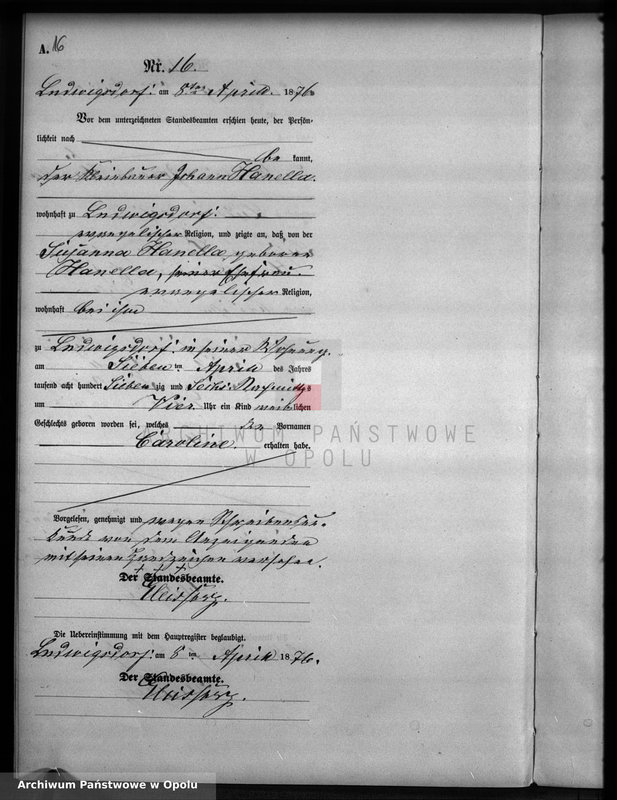 A. 16
Nr. 16.
Ludwigsdorf am 8ten April 1876
Vor dem unterzeichneten Standesbeamten erschien heute, der Persön-
lichkeit nach
be kannt,
der Kleinbauer Johann Hanella.
wohnhaft zu Ludwigsdorf.
evangelischer Religion, und zeigte an, daß von der
Susanna Hanella, geborene
Hanella, seiner Ehefrau.
evangelischer Religion,
wohnhaft bei ihm
zu Ludwigsdorf. in seiner Wohnung.
am Sieben ten April des Jahres
tausend acht hundert Sieben zig und Sechs Nachmittags
um Vier Uhr ein Kind weib lichen
Geschlechts geboren worden sei, welches den Vornamen
Caroline. erhalten habe.
Vorgelesen, genehmigt und wegen Schreibensun-
kunde von dem Anzeigenden
mit seinen Handzeichen versehen.
+++
Der Standesbeamte.
Die Uebereinstimmung mit dem Hauptregister beglaubigt.
Ludwigsdorf. am 8 ten April 1876.
Der Standesbeamte.
ARCHIWUM PAŃSTWOWE
W OPOLU
Archiwum Państwowe w Opolu